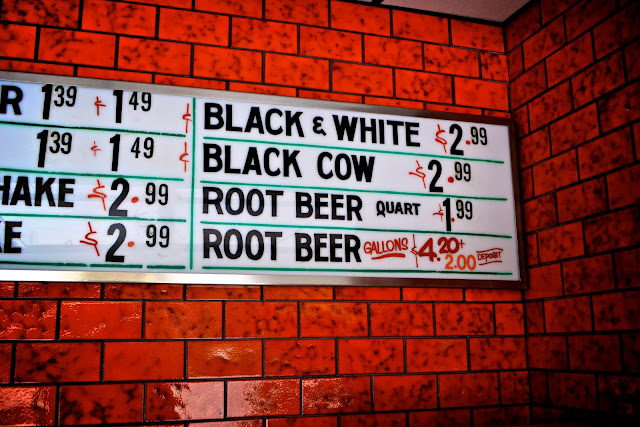 1.39 $1.49 $
1.39 $1.49 $
SHAKE $2.99
$2.99
BLACK & WHITE $2.99
BLACK COW $2.99
ROOT BEER QUART $1.99
ROOT BEER GALLONS $4.20+ 2.00 DEPOSIT